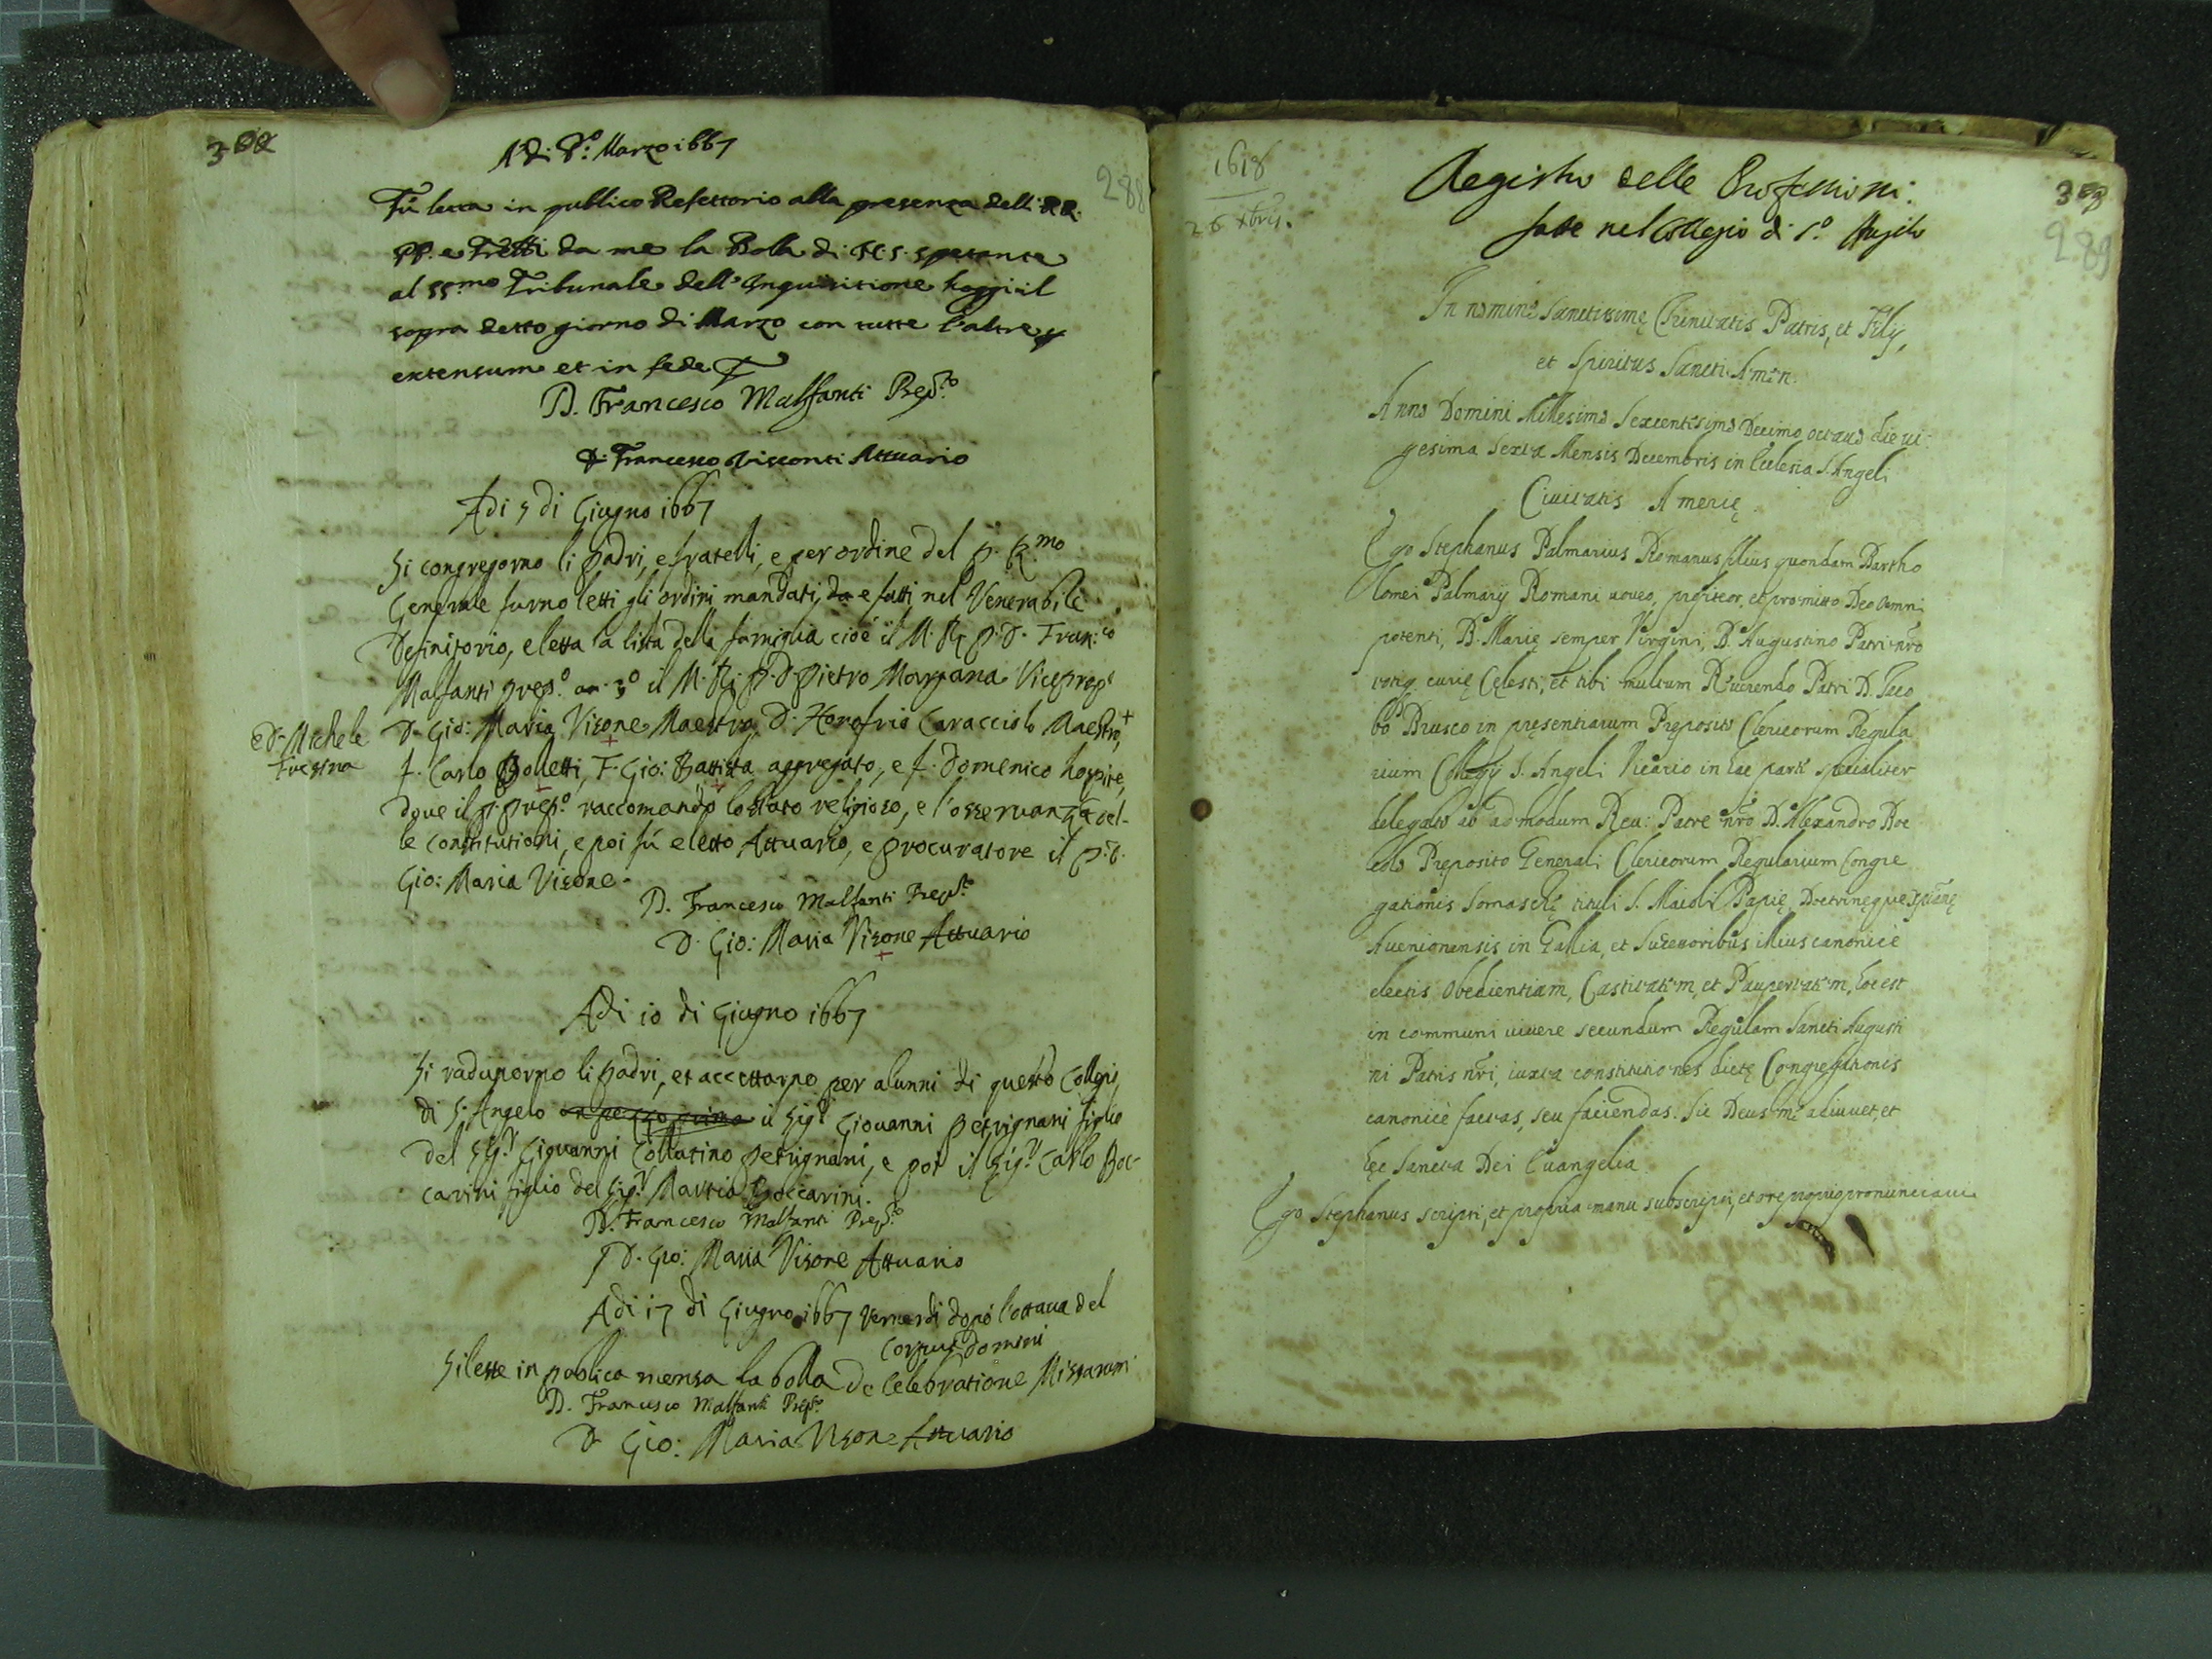 302
288
A dì p.º Marzo 1667
Fù letta in publico Refettorio alla presenza delli RR.
PP. e Fretti da me la Bolla di N. S. spetante
al SS.mo Tribunale dell'Inquisitione hoggi il
sopra detto giorno di Marzo con tutte l'altre
extensum et in fede
D. Francesco Malfanti Prep.to
D. Francesco Visconti Attuario
Adi 5 di Giugno 1667
Si congregorno li Padri, e fratelli, e per ordine del P. R.mo
Generale furno letti gli ordini mandati, da e fatti nel Venerabile
Definitorio, e letta la lista della famiglia cioè il M. R. P. D. Fran.co
Malfanti prep.º an. 3º il M. R. P. D. Pietro Margana Viceprep.º
D. Gio: Maria Visone Maestro, D. Honofrio Caracciolo Maestro,
e D. Michele
Fressina
f. Carlo Bolletti, F. Gio: Battista aggregato, e f. Domenico hospite,
doue il P. prep.º raccomandò lo stato religioso, e l'osseruanza del-
le Constitutioni, e poi fù eletto Attuario, e procuratore il P. D.
Gio: Maria Visone.
D. Francesco Malfanti Prep.to
D. Gio: Maria Visone Attuario
Adi 10 di Giugno 1667
Si radunorno li Padri, et accettarno per alunni di questo Collegio
di S. Angelo il Sig.r Giouanni Petrignani figlio
del Sig.r Giouanni Collatino Petrignani, e poi il Sig.r Carlo Boc-
carini figlio del Sig.r Martio Boccarini.
D. Francesco Malfanti Prep.to
D. Gio: Maria Visone Attuario
Adi 17 di Giugno 1667 Venerdi dopò l'ottaua del
Corpus Domini
Si lesse in publica mensa la bolla de Celebratione Missarum
D. Francesco Malfanti Prep.to
D. Gio: Maria Visone Attuario
1618
26 Xbris.
303
289
Registro delle Professioni
fatte nel Collegio di S.º Angelo
In nomine Sanctissimę Trinitatis Patris, et Filij,
et Spiritus Sancti Amen.
Anno Domini Millesimo Sexcentesimo Decimo octauo die ui-
gesima sexta Mensis Decembris in Ecclesia S. Angeli
Ciuitatis Amerię
Ego Stephanus Palmarius Romanus filius quondam Bartho
lomei Palmarij Romani uoueo, profiteor, et promitto Deo Omni
potenti, B. Marię semper Virgini, B. Augustino Patri nr̃o
totiq. curię Cęlesti, et tibi multum R.uerendo Patri D. Iaco
bo Brusco in presentiarum Preposito Clericorum Regula
rium Collegij S. Angeli Vicario in hac parte specialiter
delegato ab admodum Reu: Patre nr̃o D. Alexandro Boc
colo Preposito Generali Clericorum Regularium Congre
gationis Somaschę tituli S. Maioli Papię, Doctrinęque Xpianę
Auenionensis in Gallia, et Successoribus illius canonicè
electis Obedientiam, Castitatem, et Paupertatem, hoc est
in communi uiuere secundum Regulam Sancti Augusti
ni Patris nr̃i, iuxta constitutiones dictę Congregationis
canonicè factas, seu faciendas. Sic Deus me adiuuet, et
hęc Sancta Dei Euangelia
Ego Stephanus scripsi, et propria manu subscripsi, et ore proprio pronunciaui